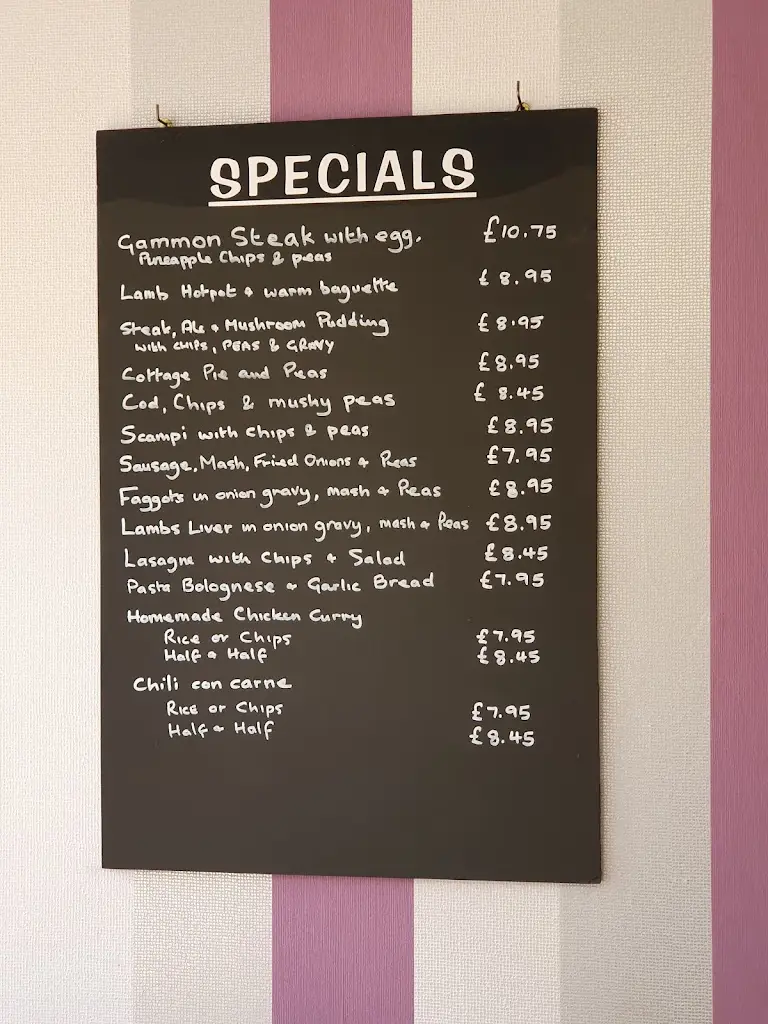 SPECIALS
Gammon Steak with egg. £10.75
Pineapple Chips & peas
Lamb Hotpot & warm baguette £8.95
Steak, Ale & Mushroom Pudding £8.95
with CHIPS, PEAS & GRAVY
Cottage Pie and Peas £8.95
Cod, Chips & mushy peas £8.45
Scampi with chips & peas £8.95
Sausage, Mash, Fried Onions & Peas £7.95
Faggots in onion gravy, mash & Peas £8.95
Lambs Liver in onion gravy, mash & Peas £8.95
Lasagne with Chips & Salad £8.45
Pasta Bolognese & Garlic Bread £7.95
Homemade Chicken Curry
Rice or Chips £7.95
Half & Half £8.45
Chili con carne
Rice or Chips £7.95
Half & Half £8.45